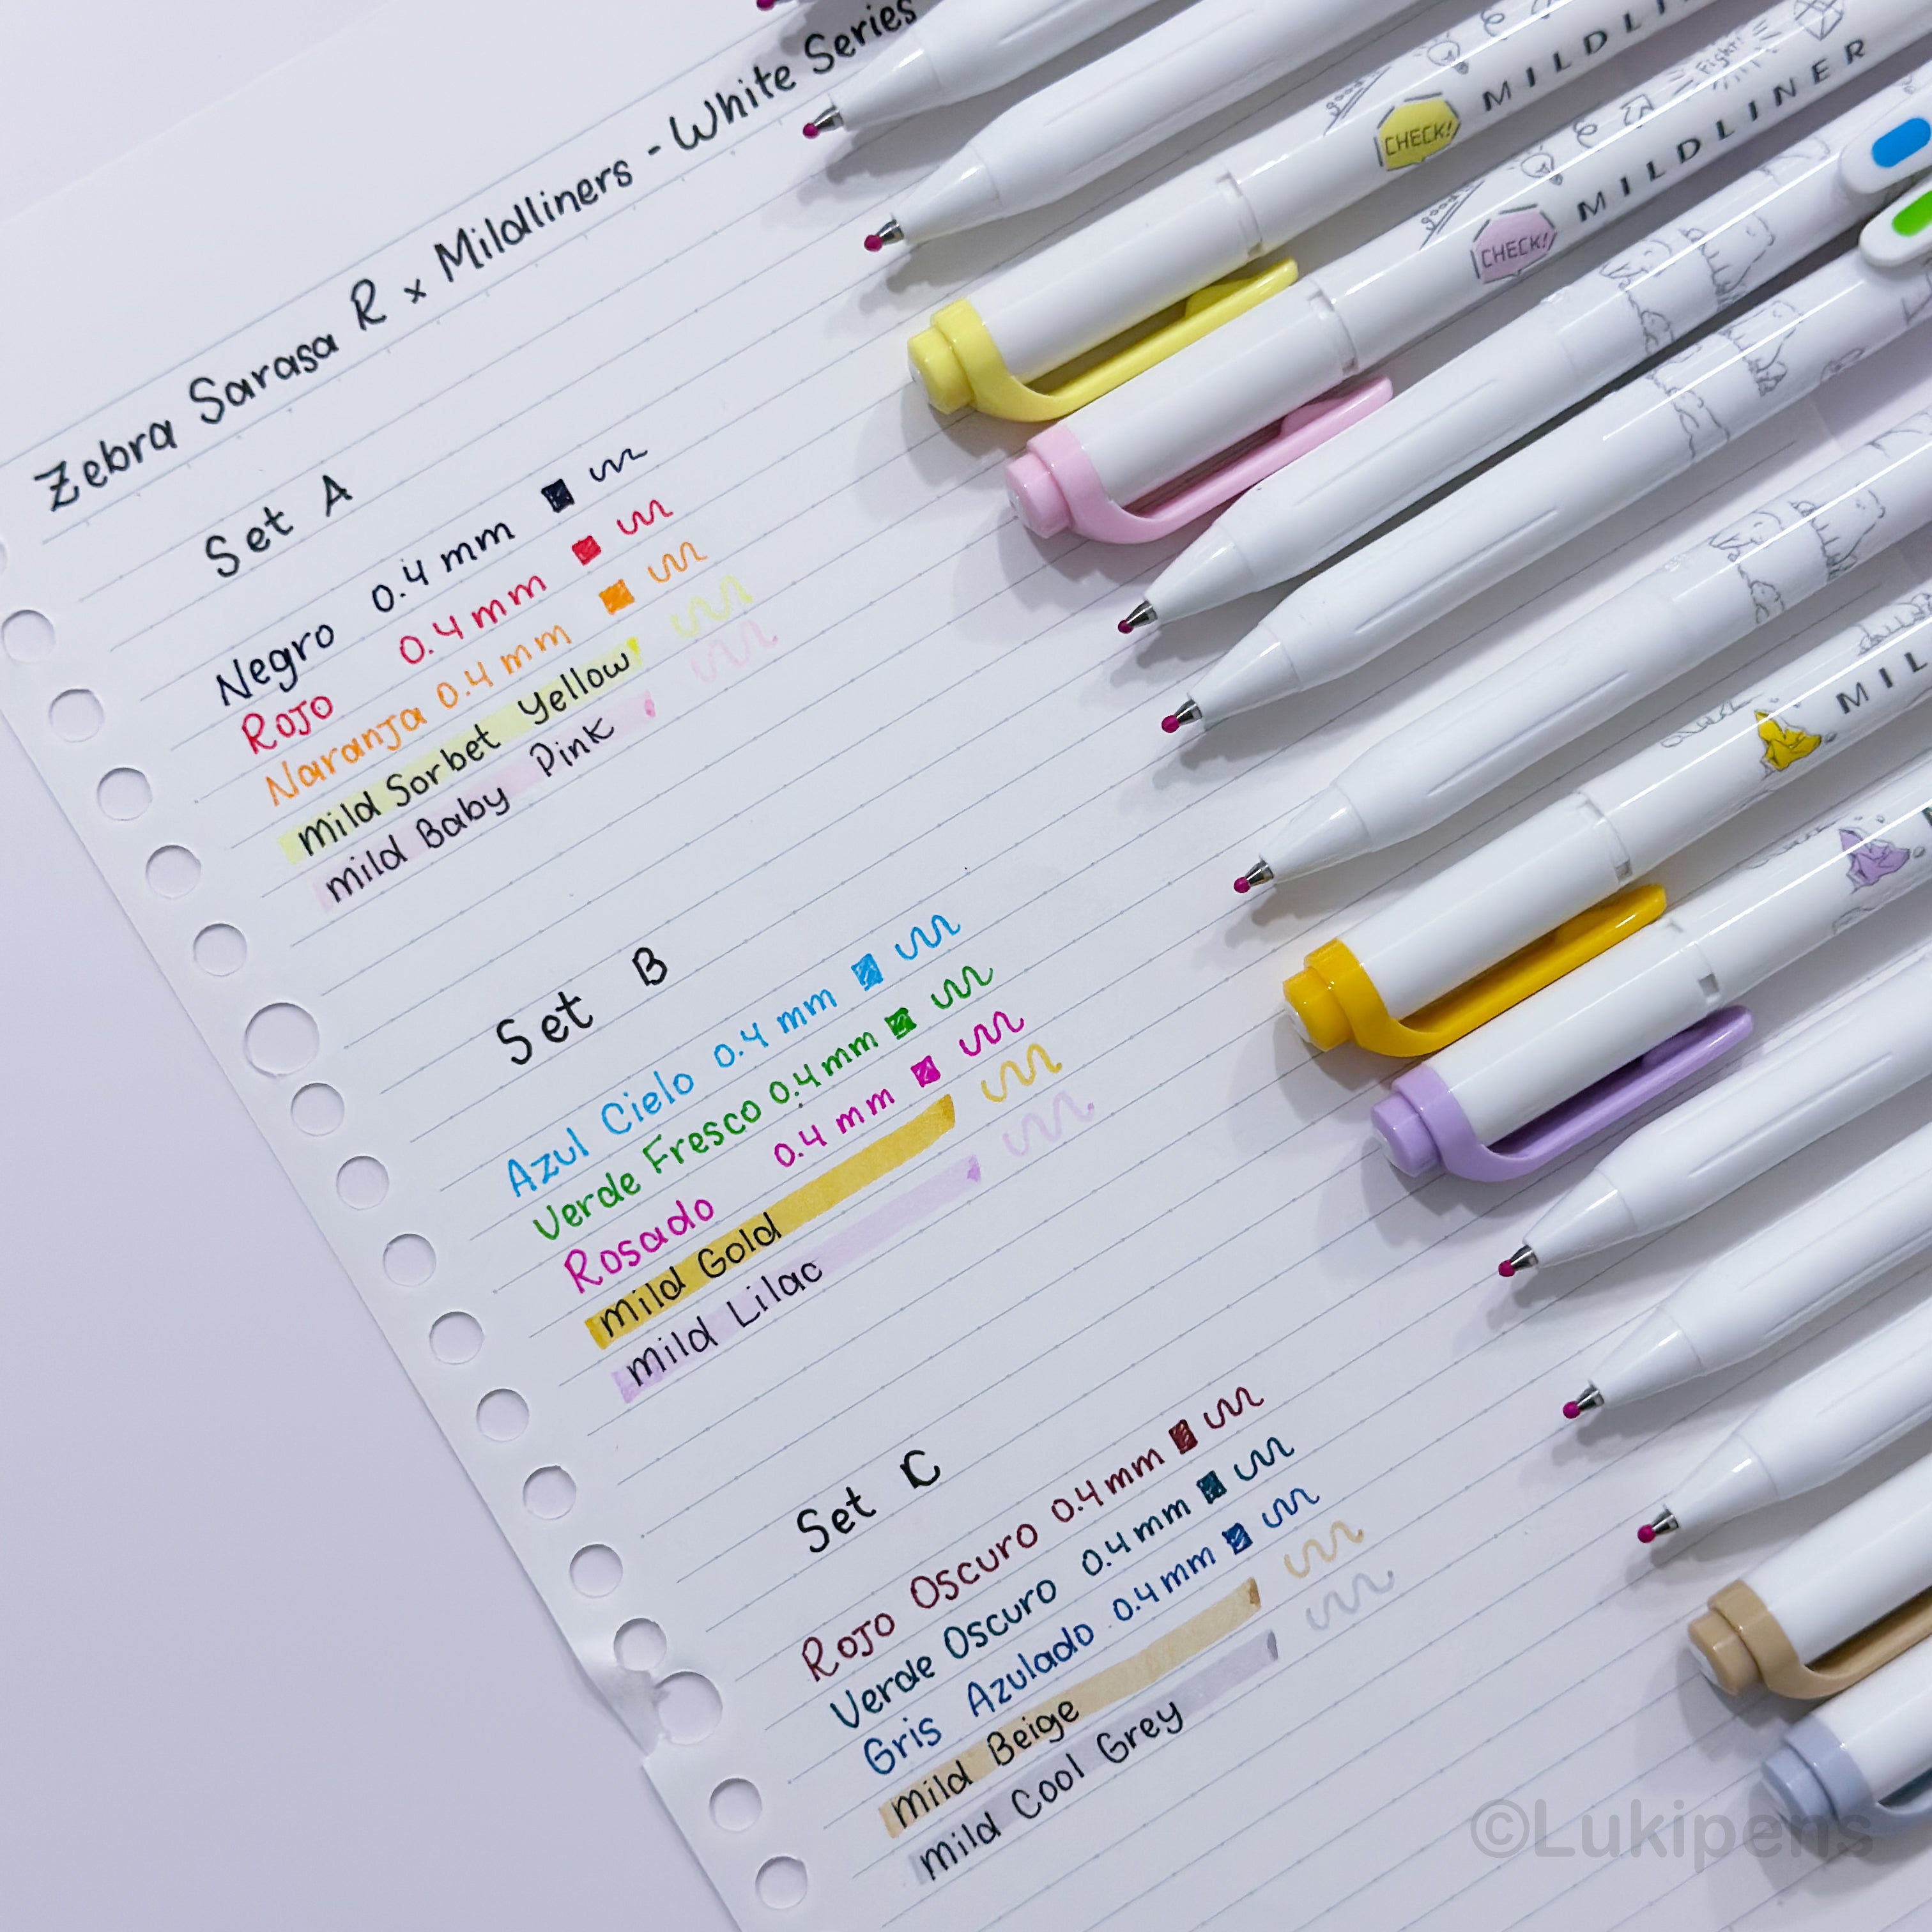 Zebra Sarasa R x Mildliners - White Series
Set A
Negro 0.4 mm
Rojo 0.4 mm
Naranja 0.4 mm
Mild Sorbet Yellow
Mild Baby Pink
Set B
Azul Cielo 0.4 mm
Verde Fresco 0.4 mm
Rosado 0.4 mm
Mild Gold
Mild Lilac
Set C
Rojo Oscuro 0.4 mm
Verde Oscuro 0.4 mm
Gris Azulado 0.4 mm
Mild Beige
Mild Cool Grey
good CHECK! MILDLI
good CHECK! Fight! MILDLINER
MIL
©Lukipens